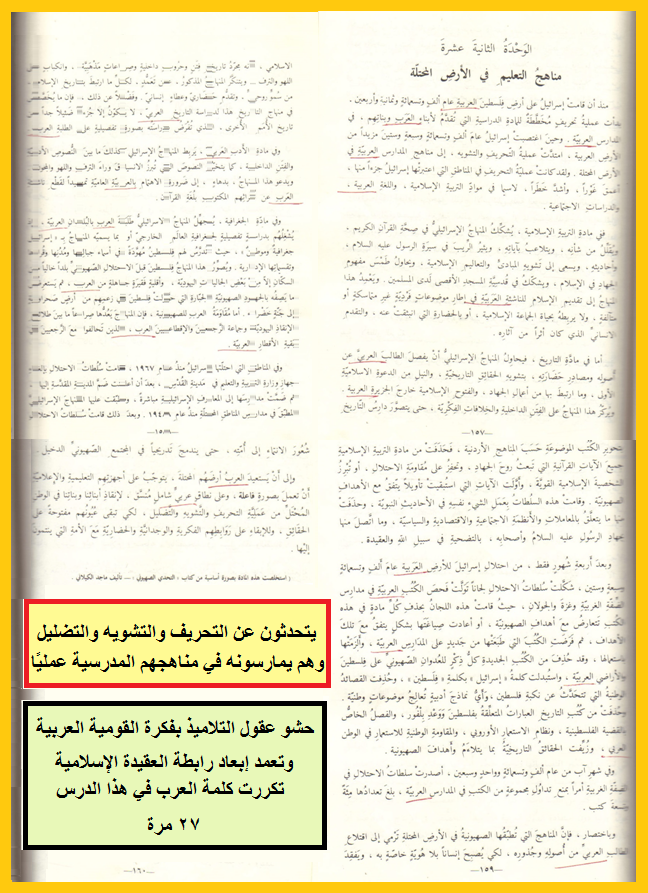 الوَحْدَةُ الثانيَة عشرَة
مناهجُ التعليم في الأرضِ المحتلّة
منذ أن قامت إسرائيلُ على أرضِ فلسطينَ العربيةِ عام ألفٍ وتسعمائةٍ وثمانية وأربعين ،
بدأت عمليةُ تحريفٍ مُخَطَّطةٌ للمادةِ الدراسيةِ التي تُقدَّمُ لأبناءِ العَرَبِ وبناتِهم ، في
المدارسِ العربيّة . وحينَ اغتصبتْ إسرائيلُ عامَ ألفٍ وتسعمائةٍ وسبعةٍ وستين مزيداً من
الأرضِ العربية ، امتدّتْ عمليةُ التحريفِ والتشويه ، إلى مناهجِ المدارسِ العربيّةِ في
الأرضِ المحتلة . ولقد كانت عمليةُ التحريفِ في المناطقِ التي اعتبرتْها إسرائيلُ جزءاً منها ،
أعمقَ غَوْراً ، وأشدَّ خَطَراً ، لاسيما في موادِّ التربيةِ الإسلاميةِ ، واللغةِ العربيةِ ،
والدراساتِ الاجتماعية .
ففي مادةِ التربيةِ الإسلاميةِ ، يُشكِّكُ المنهاجُ الإسرائيليُّ في صِحّةِ القرآنِ الكريم ،
ويُقَلِّلُ من شأنِه ، ويتلاعبُ بآياتِه ، ويثيرُ الرَّيبَ في سيرَةِ الرسولِ عليه السلام ،
وأحاديثِه ، ويسعى إلى تشويهِ المبادئِ والتعاليمِ الإسلاميةِ ، ويحاولُ طمْسَ مفهومِ
الجهادِ في الإسلام ، ويشككُ في قُدسيّةِ المسجدِ الأقصى لدى المسلمين . ويَعْمِدُ هذا
المنهاجُ إلى تقديمِ الإسلامِ للناشئةِ العَربيّةِ في إطارِ موضوعاتٍ فَرْديّةٍ غيرِ متماسكةٍ أو
متآلفةٍ ، ولا يربطهُ بحياةِ الجماعةِ الإسلاميةِ ، أو بالحضارةِ التي انبثقت عنه ، والتقدم
الانسانيِّ الذي كان أثراً من آثارِه .
أما في مادّةِ التاريخِ ، فيحاولُ المنهاجُ الإسرائيليُّ أنْ يفصلَ الطالبَ العربيَّ عن
أصولِه ومصادرِ حَضَارَتِه ، بتشويهِ الحقائقِ التاريخيّةِ ، والنيلِ من الدعوةِ الإسلاميةِ
الأولى ، وما ارتبطَ بها من أعمالِ الجهاد ، والفتوحِ الإسلاميةِ خارجَ الجزيرةِ العربية .
ويُركِّزُ هذا المنهاجُ على الفِتنِ الداخليةِ والخلافاتِ الفِكْريّةِ ، حتى يتصوّرَ دارسُ التّاريخِ
—١٥٧—
الاسلامي ، أنّه مجرّدُ تاريخِ فتنٍ وحروبٍ داخليةٍ وصراعاتٍ مَذْهَبيّةٍ ، وانكبابٍ على
اللهوِ والترف . ويتنكّرُ المنهاجُ المذكورُ ، عن تَعمُّدٍ ، لكلِّ ما ارتبطَ بتاريخِ الإسلامِ ،
من سُمُوٍّ روحيٍّ ، وتقدّمٍ حَضَاريٍّ وعطاءٍ إنسانيّ . وفضلاً عن ذلك ، فإن ما يُخَصَّصُ
في منهاجِ التاريخِ هذا لدراسةِ التاريخِ العربيّ ، لا يكونُ إلا جُزْءاً ضئيلاً جداً من
تاريخِ الأممِ الأخرى ، الذي تُفْرَضُ دراستُه بصورةٍ تفصيليةٍ على الطلبةِ العرب .
وفي مادةِ الأدبِ العَرَبيِّ ، يَربطُ المنهاجُ الإسرائيليُّ كذلك ما بينَ النصوصِ الأدبيةِ
والفِتنِ الداخليةِ ، كما يتخيّرُ النصوصَ التي تُبرزُ الانسياقَ وراءَ الترفِ واللهوِ والمجون .
ويدعو هذا المنهاجُ ، بدهاءٍ ، إلى ضرورةِ الاهتمامِ بالعربيةِ العاميّةِ تمهيداً لقطْعِ ناشئةِ
العَرَبِ عن تُراثِهم المكتوبِ بلُغةِ القرآن .
وفي مادةِ الجغرافية ، يُسهِّلُ المنهاجُ الإسرائيليُّ للطلبةِ العَرَبِ بالبُلدانِ العربيّةِ ، إذ
يُشْغِلُهُم بدراسةٍ تفصيليةٍ لجغرافيةِ العالمِ الخارجيِّ أو بما يسمّيه المنهاجُ بـ « إسرائيل
جغرافيةً وموطنيّاً » ، حيث تُدَرَّسُ لهم فلسطينُ مُهَوَّدةً في أسماءِ جبالِها ومُدنِها وقُراها
وتقسيماتِها الإداريةِ . ويُصَوِّرُ هذا المنهاجُ فلسطينَ قبل الاحتلالِ الصّهيونيِّ بلداً خالياً من
السكّانِ إلا من بعضِ الجالياتِ اليهوديّةِ ، وأقليةٍ فقيرةٍ جاهلةٍ من العرب ، ثم يستعرضُ
ما يصفُه بالجهودِ الصهيونيةِ الجبّارةِ التي حوّلتْ فلسطينَ في زعمِهم من أرضٍ صَحراويّةٍ
إلى جَنّةٍ خَضْراء . أما مُقاومةُ العربِ للصهيونيةِ ، فإن المنهاجَ يَعُدُّها صراعاً ما بينَ طلائعِ
الإنقاذِ اليهوديّةِ وجماعةِ الرَّجعيينَ والإقطاعيينَ العرب ، الذين تحالفوا مع الرَّجعيينَ في
بقيةِ الأقطارِ العربيّة .
وفي المناطقِ التي احتلّتها إسرائيلُ منذُ عام ١٩٦٧ ، قامتْ سُلطاتُ الاحتلالِ بإلغاءِ
جهازِ وزارةِ التربيةِ والتعليمِ في مدينةِ القُدْسِ ، بعدَ أن أعلنتْ ضمَّ المدينةِ المقدّسةِ إليها ،
ثم ضَمّتْ مدارسَها إلى المعارفِ الإسرائيليةِ مباشرةً ، وطبّقت عليها المنهاجَ الإسرائيليَّ
المطبّقَ في مدارسِ المناطقِ المحتلةِ منذُ عام ١٩٤٨ . وبعدَ ذلك قامتْ سُلطاتُ الاحتلالِ
—١٥٨—
بتحويرِ الكُتُبِ الموضوعةِ حَسَبَ المناهجِ الأردنية ، فحَذَفَتْ من مادةِ التربيةِ الإسلاميةِ
جميعَ الآياتِ القرآنيةِ التي تَبعثُ روحَ الجهادِ ، وتَحفِزُ على مُقاومةِ الاحتلالِ ، أو تُبرزُ
الشخصيةَ الإسلاميةَ القويّةَ ، وأوّلتِ الآياتِ التي استَبقيتْ تأويلاً يتّفقُ مع الأهدافِ
الصهيونيّة . وقامتْ هذه السلطاتُ بعملِ الشيءِ نفسِه في الأحاديثِ النبويّة ، وحذفتْ
منها ما يتعلّقُ بالمعاملاتِ والأنظمةِ الاجتماعيةِ والاقتصاديةِ والسياسيّةِ ، وما اتّصلَ منها
بجهادِ الرسولِ عليه السلامُ وأصحابِه ، بالتضحيةِ في سبيلِ اللهِ والعقيدة .
وبعدَ أربعةِ شهورٍ فقط ، من احتلالِ إسرائيلَ للأرضِ العَرَبيةِ عامَ ألفٍ وتسعمائةٍ
وسبعةٍ وستين ، شكّلتْ سُلطاتُ الاحتلالِ لجاناً تَوَلّتْ فَحصَ الكُتُبِ العربيّةِ في مدارسِ
الضّفّةِ الغربيّةِ وغزةَ والجولان ، حيثُ قامت هذه اللجانُ بحذفِ كُلِّ مادةٍ في هذه
الكُتبِ تتعارضُ مع أهدافِ الصهيونيّةِ ، أو أعادتْ صياغَتَها بشكلٍ يتفقُ مَعَ تلكَ
الأهداف ، ثم فَرَضَتِ الكُتُبَ التي طَبَعَتْها من جديدٍ على المَدارسِ العربيّة ، وألزَمَتْها
باستعمالِها ، وقد حُذِفَ من الكُتُبِ الجديدةِ كلُّ ذِكرٍ للعُدوانِ الصهيونيِّ على فلسطينَ
والأراضي العربيّةِ ، واستُبدلت كلمةُ « إسرائيل » بكلمةِ « فلسطين » ، وحُذِفت القصائدُ
الوطنيةُ التي تتحدّثُ عن نكبةِ فلسطين ، وأيُّ نماذجَ أدبيةٍ تُعالجُ موضوعاتٍ وطنيّة .
وحَذَفَتْ من كُتُبِ التاريخِ العباراتِ المتعلّقةَ بفلسطينَ ووَعْدِ بِلْفُور ، والفصلَ الخاصَّ
بالقضيةِ الفلسطينيةِ ، ونظامِ الاستعمارِ الأوروبيِّ ، والمقاومةِ الوطنيةِ للاستعمارِ في الوطنِ
العربي ، وزُيِّفتِ الحقائقُ التاريخيّةُ بما يتلاءمُ وأهدافَ الصهيونية .
وفي شهرِ آب من عام ألفٍ وتسعمائةٍ وواحدٍ وسبعين ، أصدرتْ سلطاتُ الاحتلالِ في
الضفّةِ الغربيةِ أمراً بمنعِ تداولِ مجموعةٍ من الكتبِ في المدارسِ العربيّةِ ، بلغَ تعدادُها مِئةً
وتسعةَ كتب .
وباختصار ، فإنَّ المناهجَ التي تُطبّقُها الصهيونيةُ في الأرضِ المحتلةِ تَرْمي إلى اقتلاعِ
الطالبِ العربيِّ من أصولِه وجُذورِه ، لكي يُصبحَ إنساناً بلا هُوِيّةٍ خاصّةٍ به ، ويَفقِدَ
—١٥٩—
شُعُورَ الانتماءِ إلى أمّتِه ، حتى يندمجَ تدريجياً في المجتمعِ الصّهيونيِّ الدخيل .
وإلى أنْ يَستعيدَ العربُ أرضَهم المحتلة ، يتوجّبُ على أجهزتِهم التعليميةِ والإعلاميةِ
أنْ تعملَ بصورةٍ فاعلة ، وعلى نطاقٍ عربيٍّ شاملٍ مُنَسَّقٍ ، لإنقاذِ أبنائِنا وبناتِنا في الوطنِ
المُحْتَلِّ من عمليّةِ التحريفِ والتّشويهِ والتّضليلِ ، لكي تبقى عُيُونُهم مفتوحةً على
الحقائق ، وللإبقاءِ على رَوَابِطِهم الفكريةِ والوجدانيّةِ والحضاريّةِ مَعَ الأمةِ التي ينتمونَ
إليها .
( استخلصت هذه المادة بصورة أساسية من كتاب ، التحدي الصهيوني ، — تأليف ماجد الكيلاني ) .
يتحدثون عن التحريف والتشويه والتضليل
وهم يمارسونه في مناهجهم المدرسية عمليًا
حشو عقول التلاميذ بفكرة القومية العربية
وتعمد إبعاد رابطة العقيدة الإسلامية
تكررت كلمة العرب في هذا الدرس
٢٧ مرة
—١٦٠—